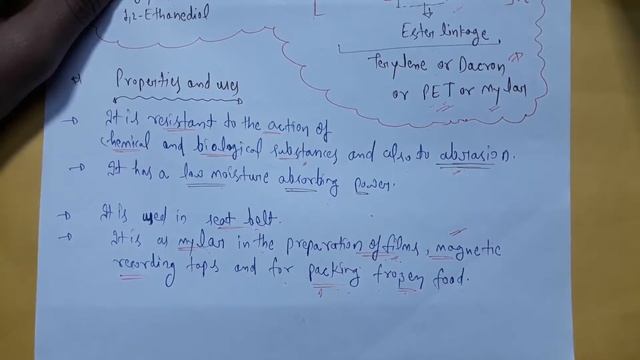 1,2-Ethanediol
Ester linkage,
Terylene or Dacron
or PET or mylar
Properties and uses
→ It is resistant to the action of
chemical and biological substances and also to abrasion.
→ It has a low moisture absorbing power.
→ It is used in seat belt.
→ It is as mylar in the preparation of films, magnetic
recording taps and for packing frozen food.